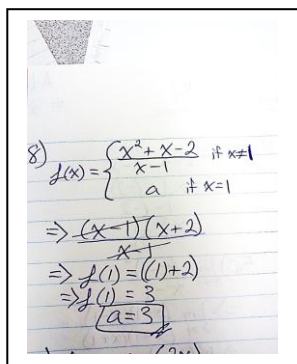 8) f(x) = { x² + x - 2 / x - 1 if x ≠ 1
a if x = 1
=> (x-1)(x+2) / x-1
=> f(1) = ((1)+2)
=> f(1) = 3
a = 3